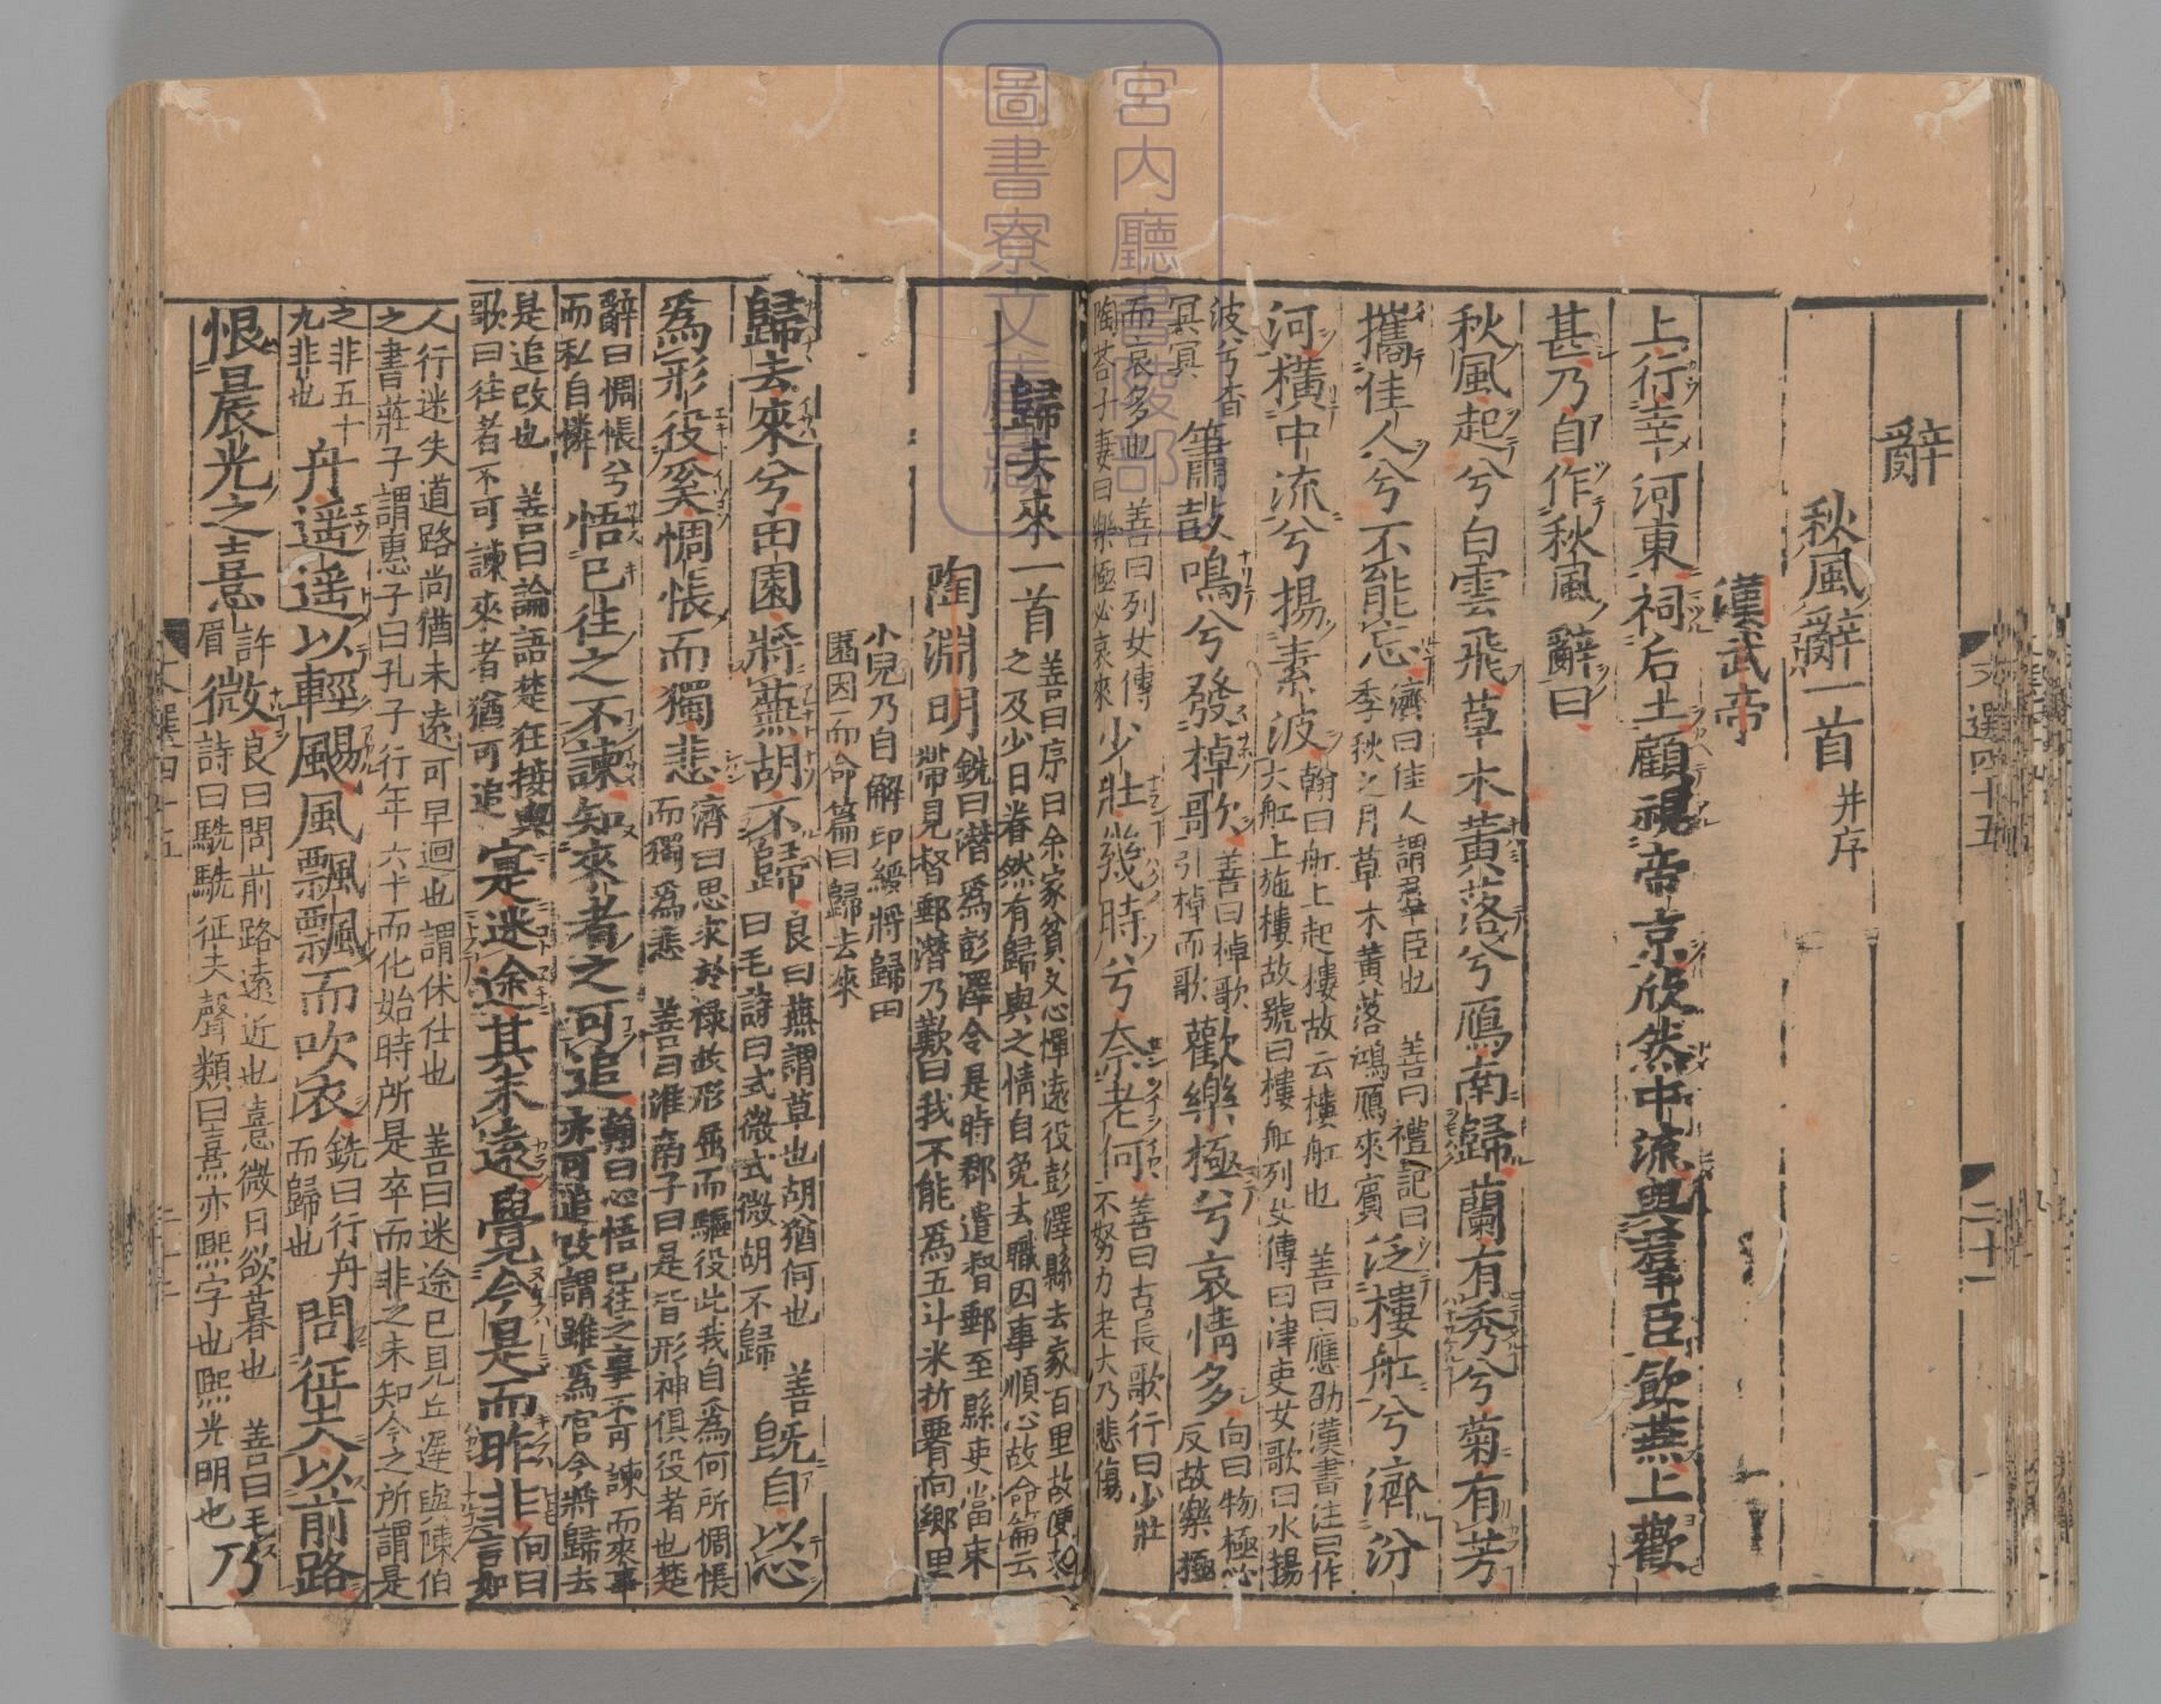 辭
秋風辭一首 并序
漢武帝
上行幸河東祠后土顧視帝京欣然中流與羣臣飲燕上歡
甚乃自作秋風辭曰
秋風起兮白雲飛草木黃落兮鴈南歸蘭有秀兮菊有芳
攜佳人兮不能忘
濟曰佳人謂羣臣也 善曰禮記曰
季秋之月草木黃落鴻鴈來賓
泛樓舡兮濟汾
河橫中流兮揚素波
翰曰舡上起樓故云樓舡也 善曰應劭漢書注曰作
大舡上施樓故號曰樓舡列女傳曰津吏女歌曰水揚
波兮杳
冥冥
簫鼓鳴兮發棹歌
善曰棹歌
引棹而歌
歡樂極兮哀情多
向曰物極必
反故樂極
而哀多也 善曰列女傳
陶荅子妻曰樂極必哀來
少壯幾時兮奈老何
善曰古長歌行曰少壯
不努力老大乃悲傷
歸去來一首
善曰序曰余家貧又心憚遠役彭澤縣去家百里故便求
之及少日眷然有歸與之情自免去職因事順心故命篇云
陶淵明
銑曰潛爲彭澤令是時郡遣督郵至縣吏當束
帶見督郵潛乃歎曰我不能爲五斗米折腰向鄉里
小兒乃自解印綬將歸田
園因而命篇曰歸去來
歸去來兮田園將蕪胡不歸
良曰蕪謂草也胡猶何也 善
曰毛詩曰式微式微胡不歸
旣自以心
爲形役奚惆悵而獨悲
濟曰思求於禄故形屈而驅役此我自爲何所惆悵
而獨爲悲 善曰淮南子曰是皆形神俱役者也楚
辭曰惆悵兮
而私自憐
悟已往之不諫知來者之可追
翰曰心悟已往之事不可諫而來事
亦可追改謂雖爲官今將歸去
是追改也 善曰論語楚狂接輿
歌曰往者不可諫來者猶可追
寔迷途其未遠覺今是而昨非
向曰
言如
人行迷失道路尚猶未遠可早迴也謂休仕也 善曰迷途已見丘遲與陳伯
之書莊子謂惠子曰孔子行年六十而化始時所是卒而非之未知今之所謂是
之非五十
九非也
舟遥遥以輕颺風飄飄而吹衣
銑曰行舟
而歸也
問征夫以前路
恨晨光之熹
許
眉
微
良曰問前路遠近也熹微日欲暮也 善曰毛
詩曰駪駪征夫聲類曰熹亦熙字也熙光明也
乃
文選四十五
二十一
宮内廳書陵部
圖書寮文庫藏